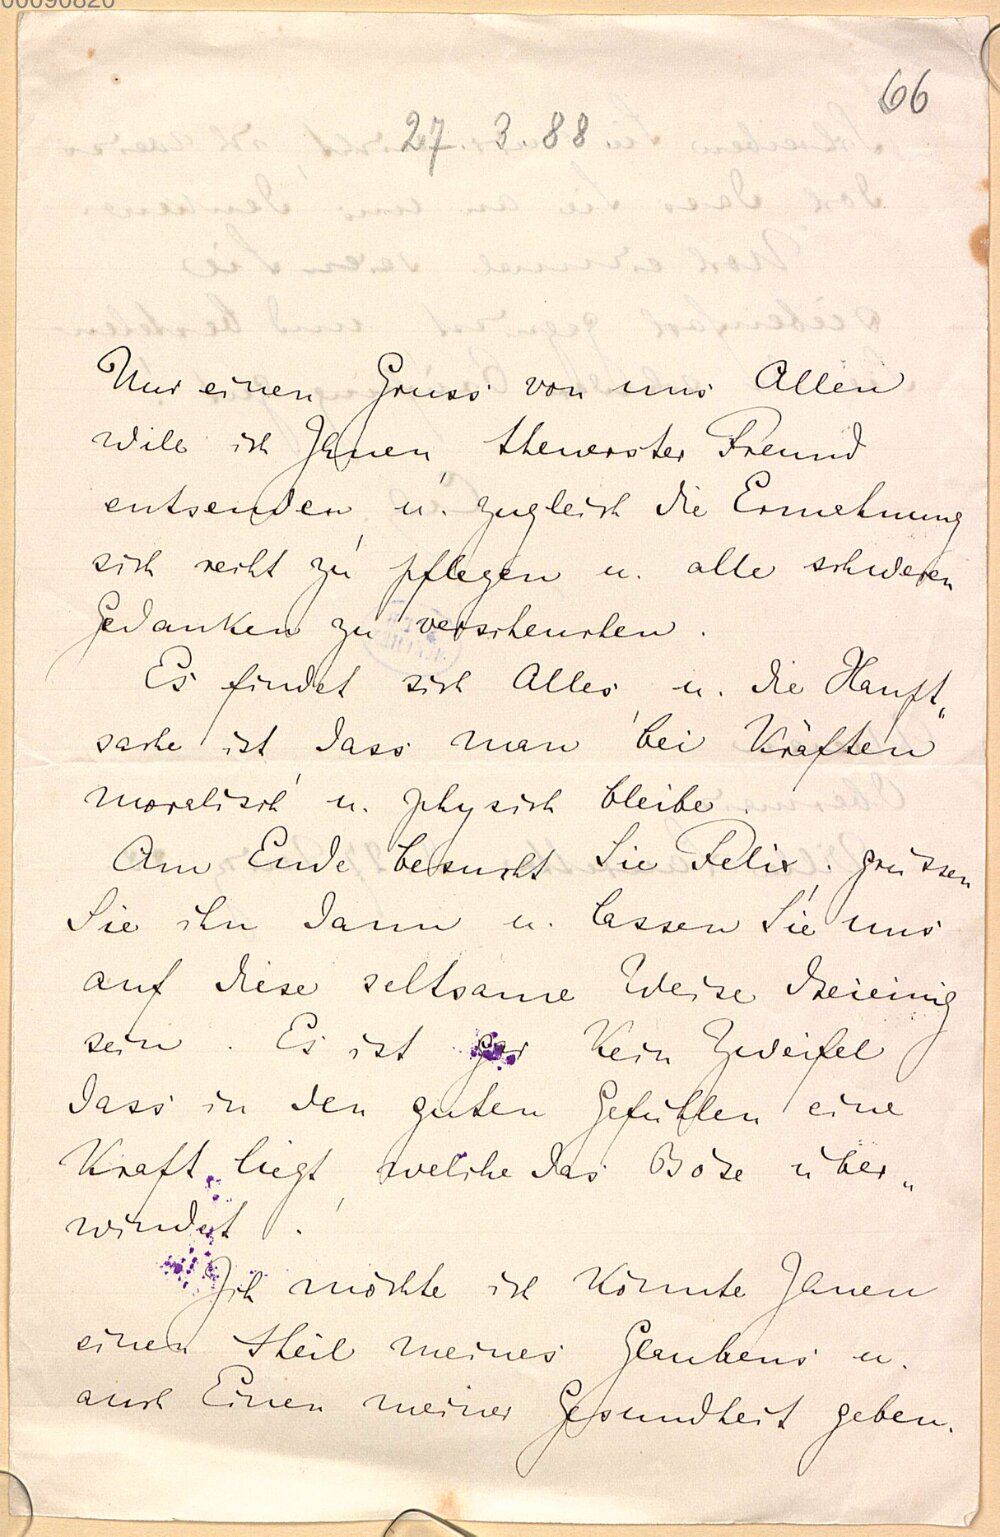 00090820
66
27. 3. 88
Nur einen Gruss von uns Allen
will ich Ihnen, theuerster Freund
entsenden u. zugleich die Ermahnung
sich recht zu pflegen u. alle schweren
Gedanken zu verscheuchen.
Es findet sich Alles, u. die Haupt„
sache ist dass man bei Kräften
moralisch u. physisch bleibe.
Am Ende besucht Sie Felix. grüssen
Sie ihn dann u. lassen Sie uns
auf diese seltsame Weise dreieinig
sein. Es ist gar kein Zweifel
dass in den guten Gefühlen eine
Kraft liegt, welche das Böse über„
windet.
Ich möchte ich könnte Ihnen
einen theil meines Glaubens u.
auch Einen meiner Gesundheit geben.